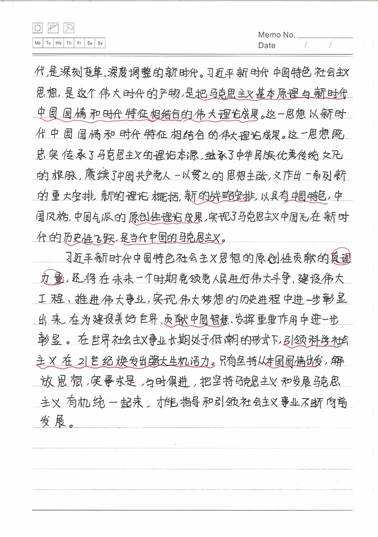 Memo No.
Mo Tu We Th Fr Sa Su
Date / /
代,是深刻变革、深度调整的新时代。习近平新时代中国特色社会主义
思想,是这个伟大时代的产物,是把马克思主义基本原理与新时代
中国国情和时代特征相结合的伟大理论成果。这一思想以新时
代中国国情和时代特征相结合的伟大理论成果。这一思想既
忠实传承了马克思主义的理论本源,继承了中华民族优秀传统文化
的根脉,赓续了中国共产党人一以贯之的思想主旋,又作出一系列新
的重大安排、新的理论概括、新的战略安排,以具有中国特色、中
国风格、中国气派的原创性理论成果,实现了马克思主义中国化在新时
代的历史性飞跃,是当代中国的马克思主义。
习近平新时代中国特色社会主义思想的原创性贡献的真理
力量,还将在未来一个时期竟领党人民进行伟大斗争、建设伟大
工程、推进伟大事业、实现伟大梦想的历史进程中进一步彰显
出来,在为建设美好世界、贡献中国智慧、发挥重要作用中进一步
彰显。在世界社会主义长期处于低潮的形式下,引领科学社会
主义在21世纪焕发出强大生机活力。只有坚持从本国国情出发,解
放思想,实事求是,与时俱进,把坚持马克思主义和发展马克思
主义有机统一起来,才能指导和引领社会主义事业不断向前
发展。